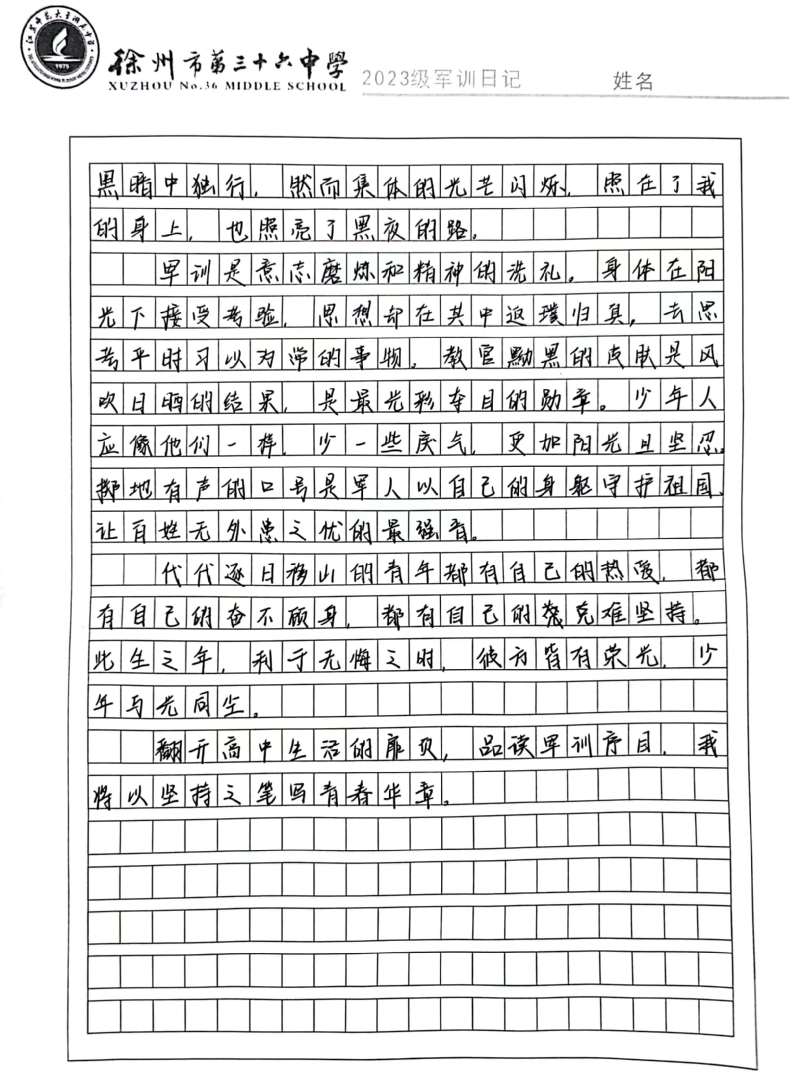 徐州市第三十六中學
XUZHOU No.36 MIDDLE SCHOOL
2023级军训日记 姓名
1975
黑暗中独行，然而集体的光芒闪烁，照在了我
的身上，也照亮了黑夜的路。
军训是意志磨炼和精神的洗礼。身体在阳
光下接受考验，思想却在其中返璞归真，去思
考平时习以为常的事物。教官黝黑的皮肤是风
吹日晒的结果，是最光彩夺目的勋章。少年人
应像他们一样，少一些戾气，更加阳光且坚忍。
掷地有声的口号是军人以自己的身躯守护祖国、
让百姓无外患之忧的最强音。
代代逐日移山的青年都有自己的热爱，都
有自己的奋不顾身，都有自己的克难坚持。
此生之年，利于无悔之时，彼方皆有荣光，少
年与光同尘。
翻开高中生活的扉页，品读军训序目，我
将以坚持之笔写青春华章。